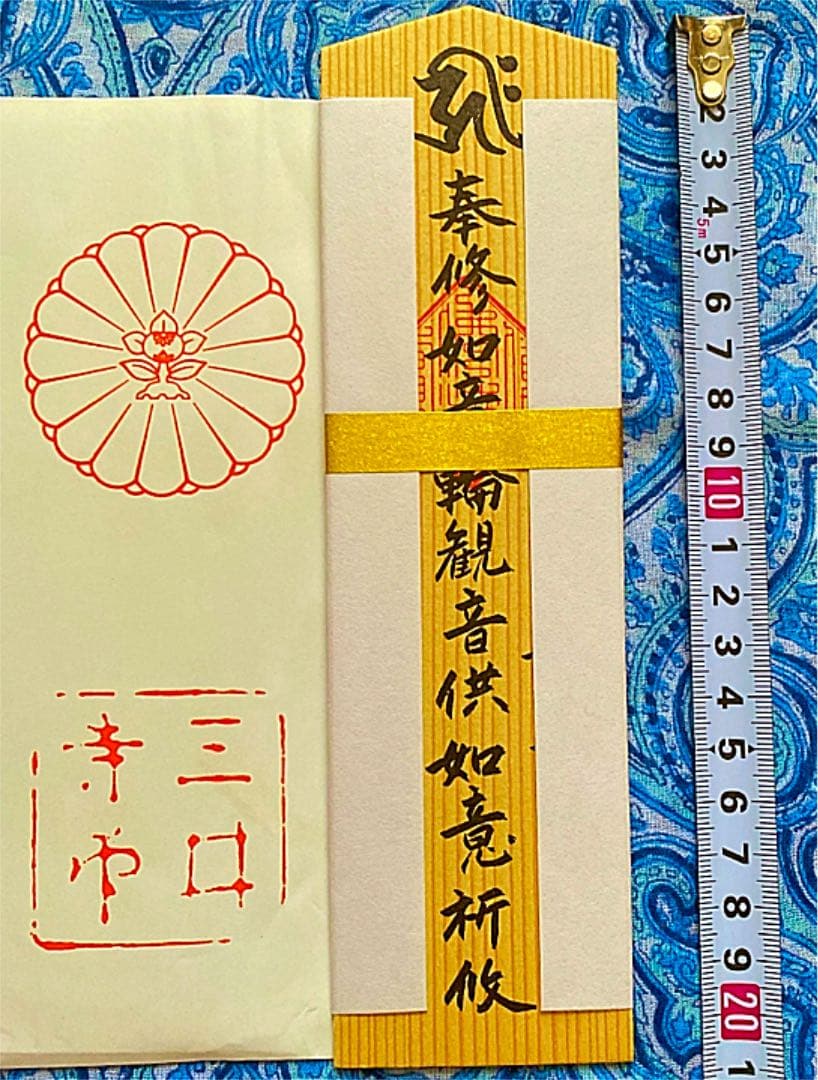 奉修如意輪観音供如意祈攸
三井
寺印
2
3
4
5m
5
6
7
8
9
10
1
2
3
4
5
6
7
8
9
20
1